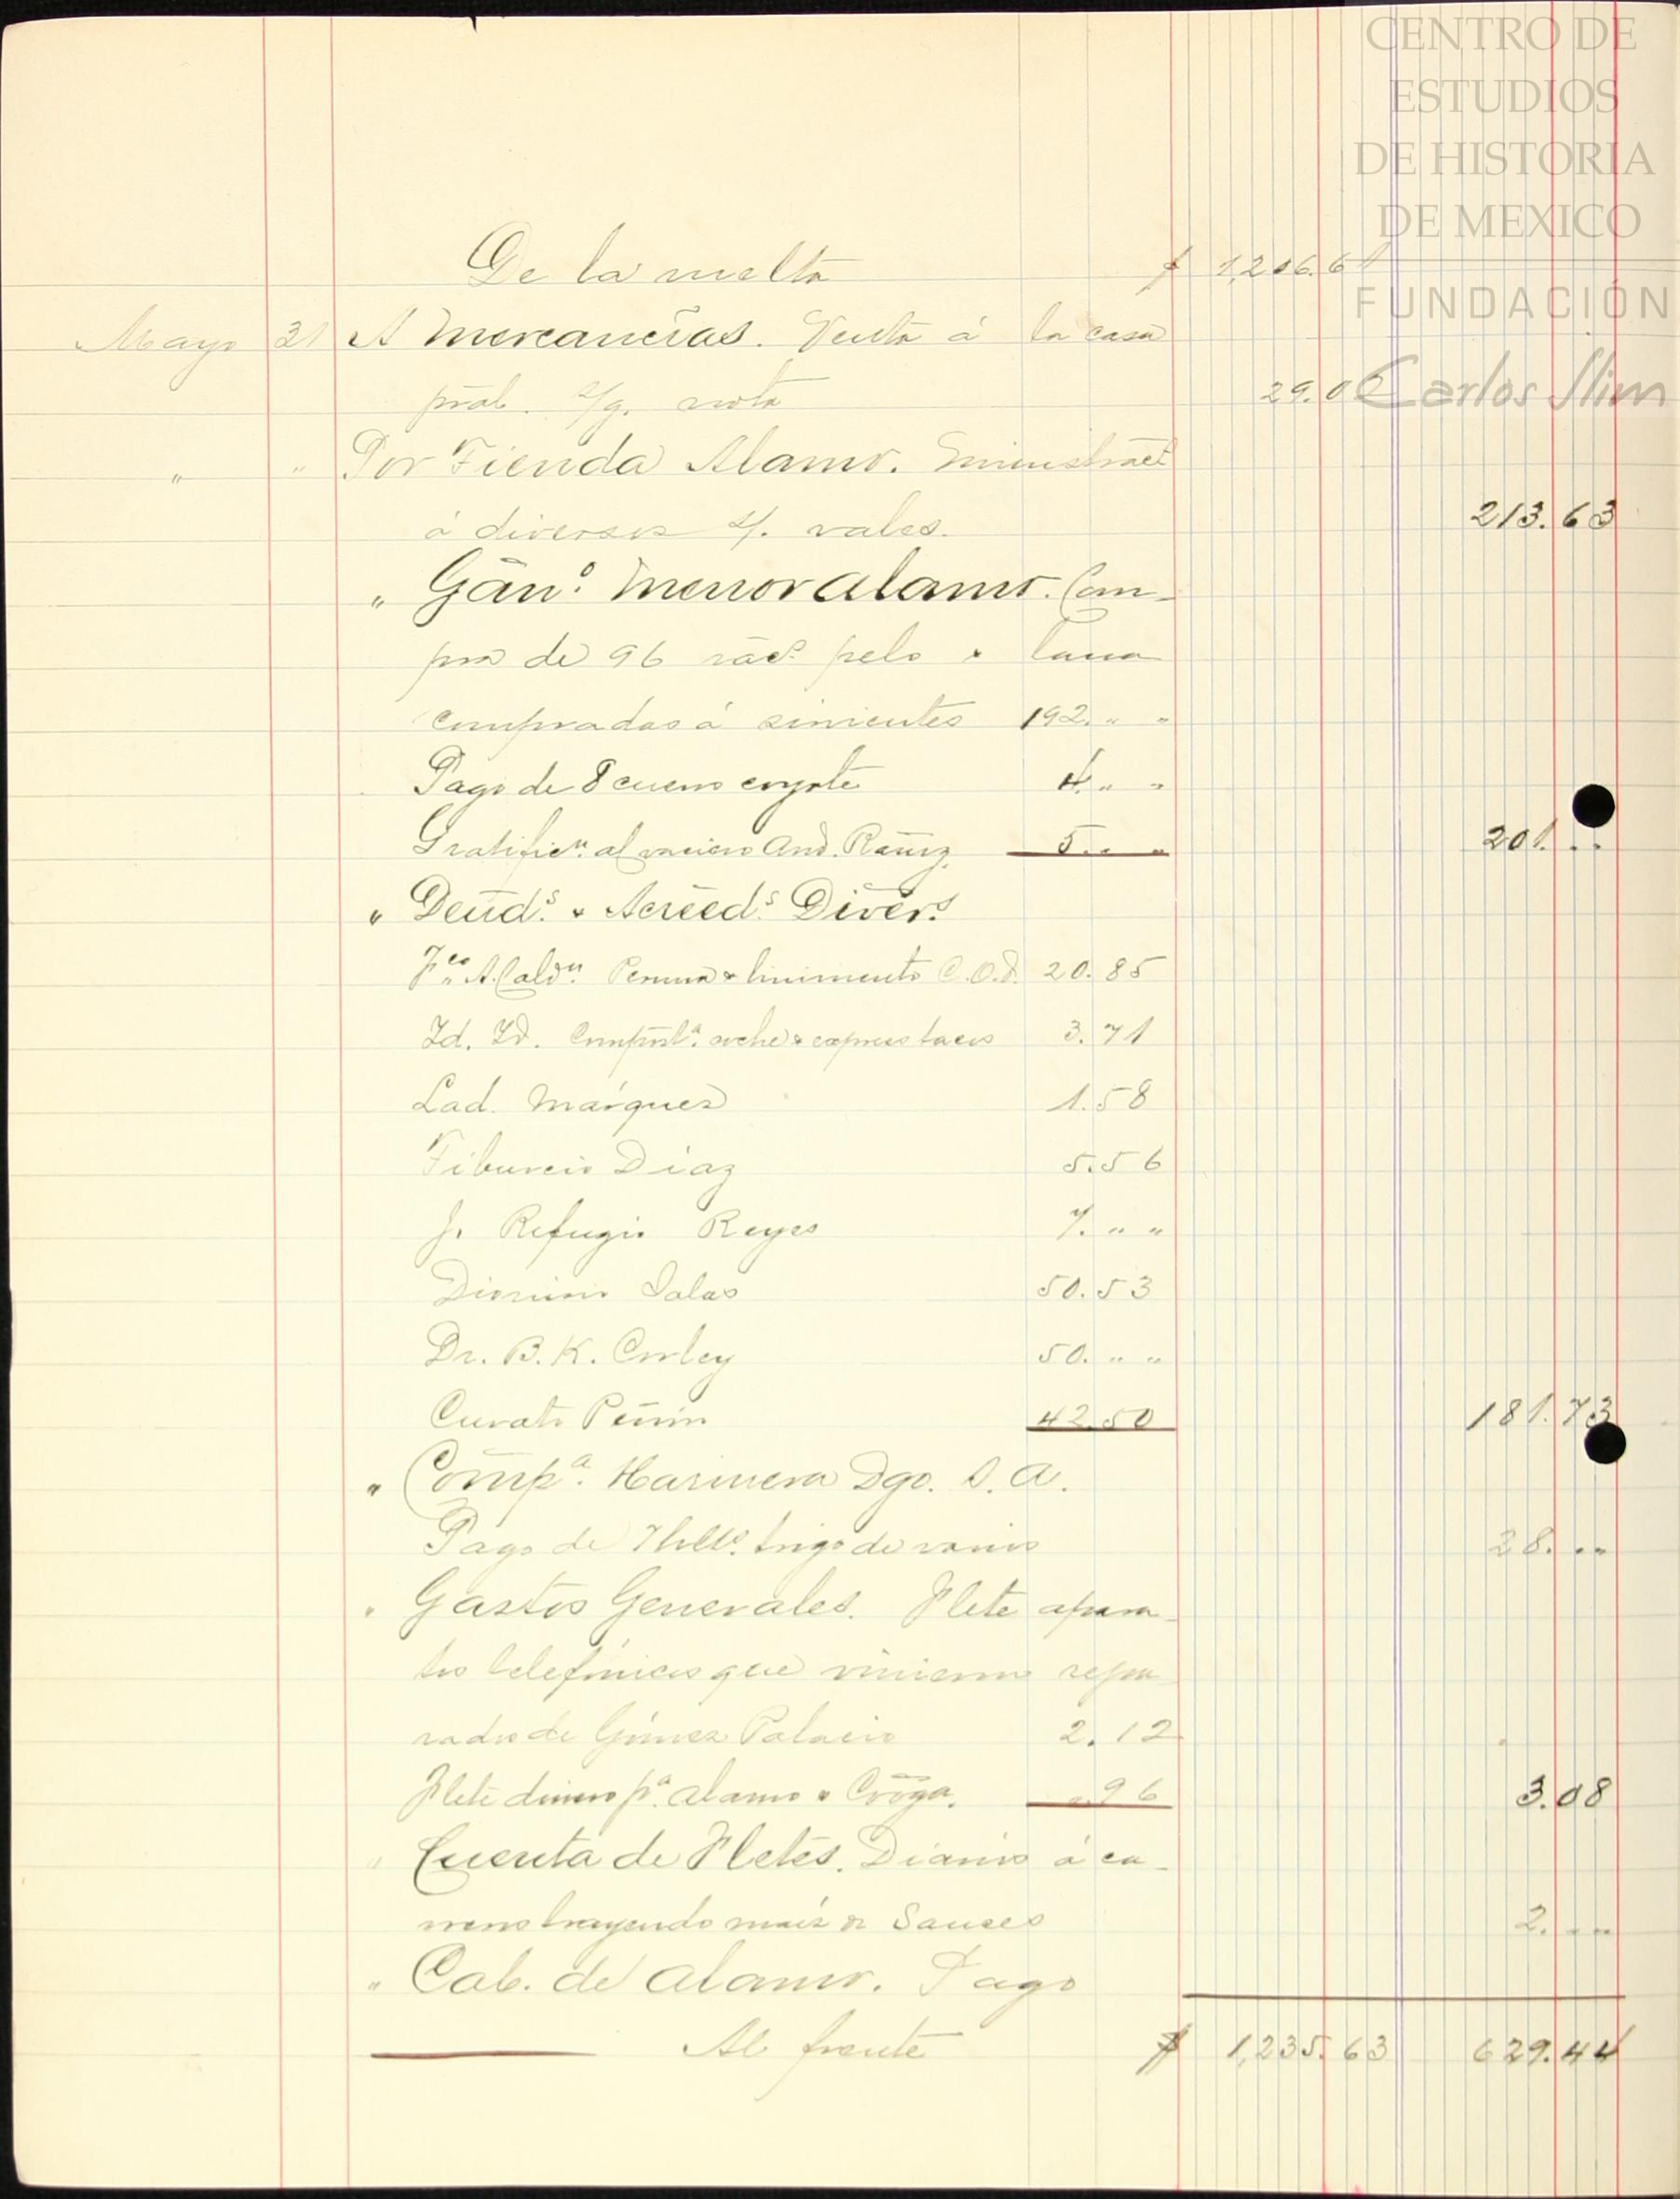 CENTRO DE
ESTUDIOS
DE HISTORIA
DE MEXICO
FUNDACIÓN
Carlos Slim
De la vuelta $ 1,206.61
Mayo 31 A Mercancías. Venta á la casa
pral. s/g. nota 29.02
" " Por Tienda Alamo. Suministract
á diversos s/. vales. 213.63
" Gan.º Menor Alamo. Com-
pra de 96 pelo & lana
compradas á sirvientes 192. " "
Pago de 8 cuero coyote 4. " "
Gratific.n al And. Ramz. 5. " " 201. " "
" Deud.s & Acreed.s Divers.
F.co A. Cald.n Peruna & linimento C.O.D. 20.85
Id. Id. coche & express 3.71
Lad. Márquez 1.58
Tiburcio Diaz 5.56
J. Refugio Reyes 7. " "
Dionisio Salas 50.53
Dr. B. K. Corley 50. " "
Curato Peñón 42.50 181.73
" Comp.a Harinera Dgo. S. A.
Pago de trigo de 28. " "
" Gastos Generales. Flete apara-
tos telefónicos que vinieron repa
rados de Gómez Palacio 2.12
Flete dinero p.a Alamo & " 96 3.08
" Cuenta de Fletes. Diarios á ca-
rreros trayendo maíz Sauces 2. " "
" Cab. de Alamo. Pago
Al frente $ 1,235.63 629.44